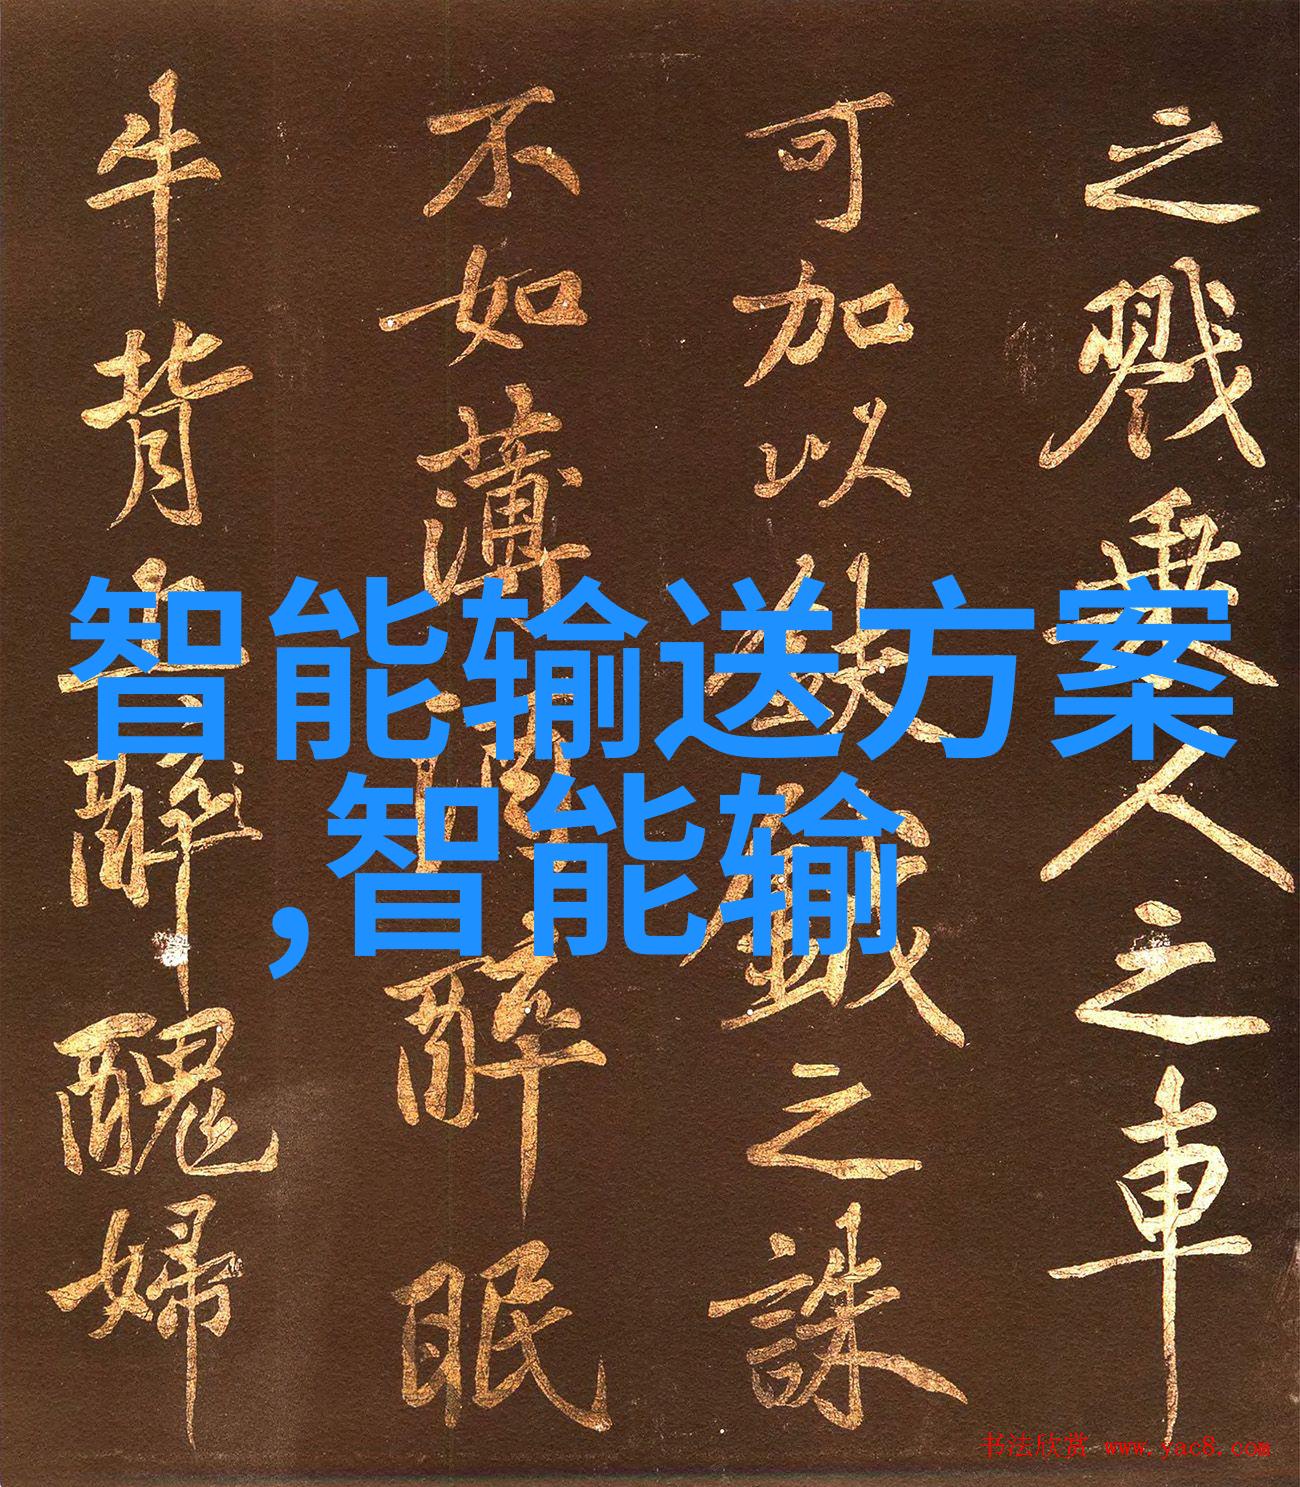 之戮乘人之車
可加以鈇鉞之誅
不如薄酒醉眠
牛背上醉醜婦
智能输送方案
,智能输
书法欣赏 www.yac8.com